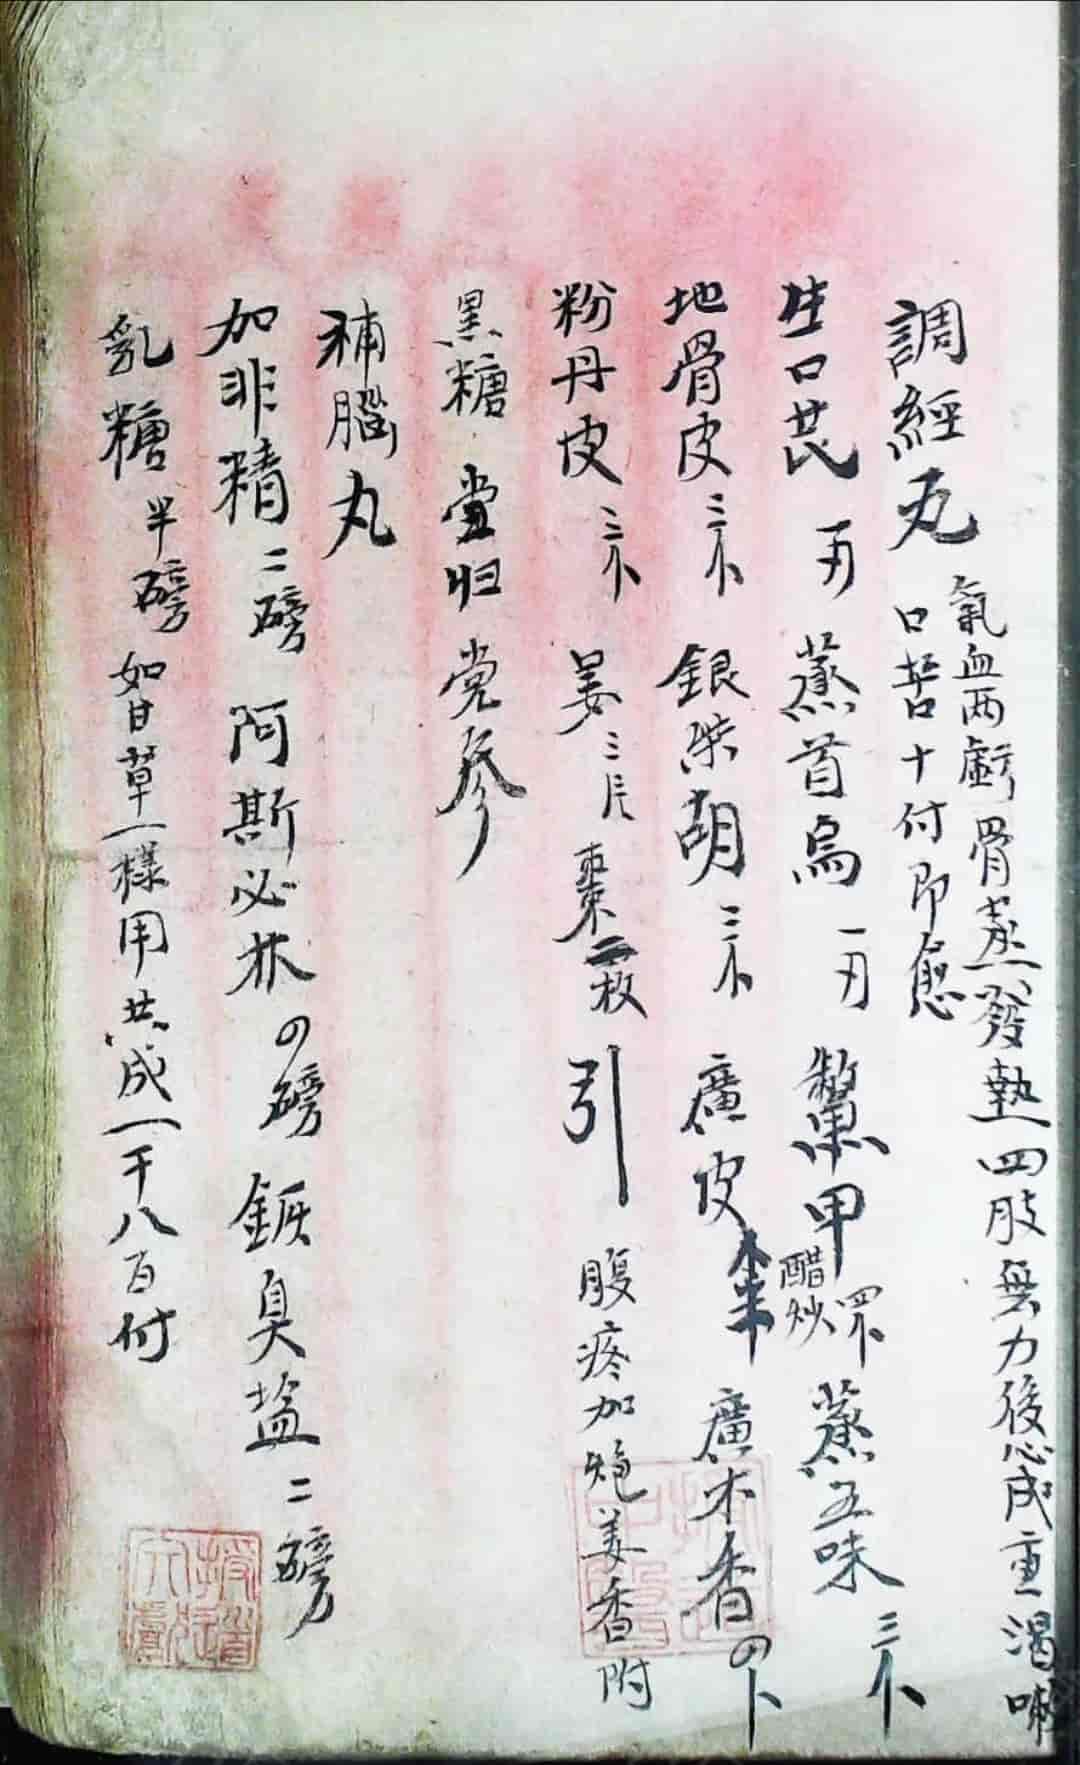 調經丸
氣血両虧骨蒸發熱四肢無力後心成重渴
口苦十付即愈
生口芪 蒸首烏 一刃 鱉甲 醋炒 蒸五味 三
地骨皮 三 銀柴胡 三 廣皮 廣木香
粉丹皮 三 姜三片 棗二枚 引 腹疼加炮姜香附
黑糖 當归 党參
補腦丸
加非精 二磅 阿斯必林 磅 臭盐 二磅
乳糖半磅 如甘草一樣用共成一千八百付